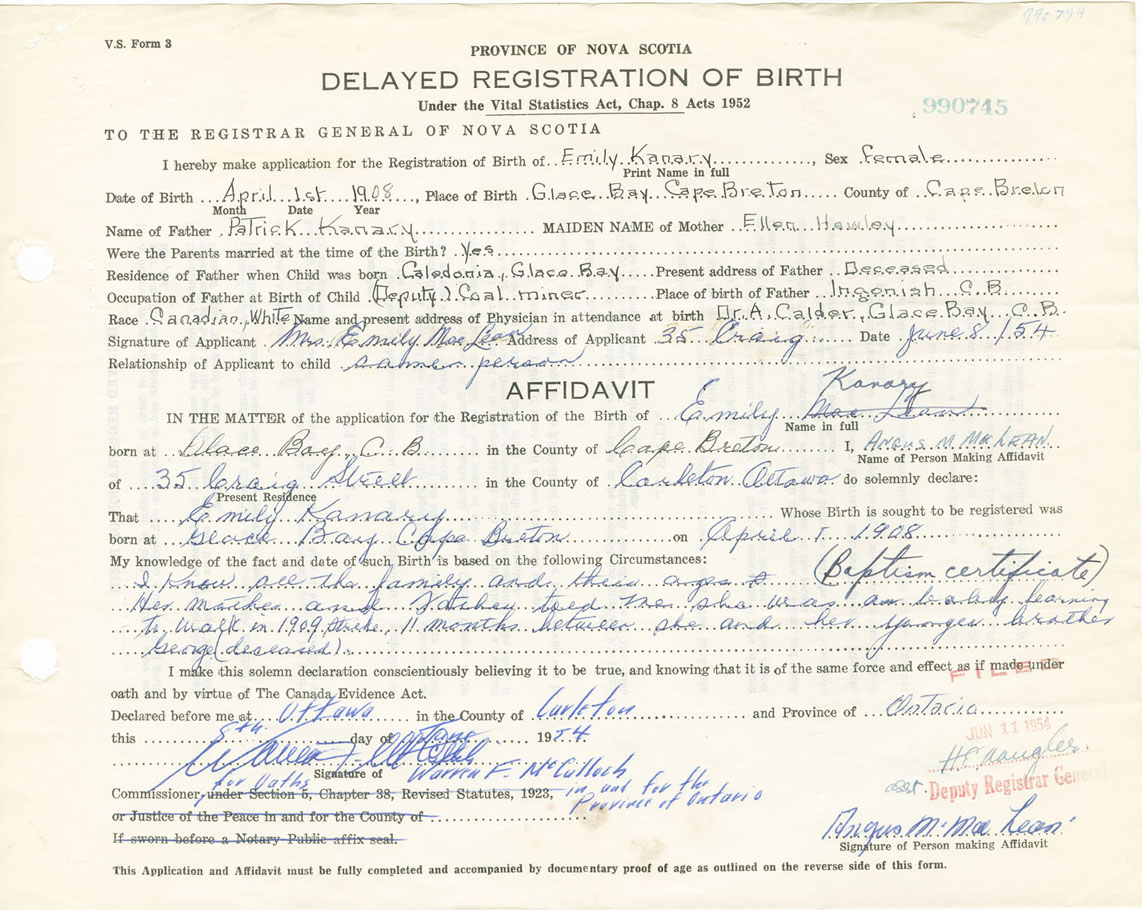 990744
V.S. Form 3
PROVINCE OF NOVA SCOTIA
DELAYED REGISTRATION OF BIRTH
Under the Vital Statistics Act, Chap. 8 Acts 1952
990745
TO THE REGISTRAR GENERAL OF NOVA SCOTIA
I hereby make application for the Registration of Birth of Emily Kanary, Sex female
Print Name in full
Date of Birth April 1st 1908, Place of Birth Glace Bay Cape Breton County of Cape Breton
Month Date Year
Name of Father Patrick Kanary MAIDEN NAME of Mother Ellen Hawley
Were the Parents married at the time of the Birth? Yes
Residence of Father when Child was born Caledonia, Glace Bay Present address of Father Deceased
Occupation of Father at Birth of Child (Deputy) Coal miner Place of birth of Father Ingonish C.B.
Race Canadian, White Name and present address of Physician in attendance at birth Dr. A. Calder, Glace Bay C.B.
Signature of Applicant Mrs. Emily Mac Lean Address of Applicant 35 Craig Date June 8/54
Relationship of Applicant to child same person
AFFIDAVIT
Kanary
IN THE MATTER of the application for the Registration of the Birth of Emily Mac Lean
Name in full
born at Glace Bay, C.B. in the County of Cape Breton I, Angus M. MacLean
Name of Person Making Affidavit
of 35 Craig Street in the County of Carleton Ottawa do solemnly declare:
Present Residence
That Emily Kanary Whose Birth is sought to be registered was
born at Glace Bay Cape Breton on April 1 1908
My knowledge of the fact and date of such Birth is based on the following Circumstances:
I know all the family and their ages (Baptism certificate)
Her mother and father told me she was a baby learning
to walk in 1909 strike, 11 months between she and her younger brother
George (deceased).
I make this solemn declaration conscientiously believing it to be true, and knowing that it is of the same force and effect as if made under
FILED
oath and by virtue of The Canada Evidence Act.
Declared before me at Ottawa in the County of Carleton and Province of Ontario
this 8th day of 1954
JUN 11 1954
Signature of Warren F. McCulloch
for Oaths
Commissioner under Section 5, Chapter 38, Revised Statutes, 1923, in and for the
Province of Ontario
asst. Deputy Registrar General
or Justice of the Peace in and for the County of
If sworn before a Notary Public affix seal.
Angus M. Mac Lean
Signature of Person making Affidavit
This Application and Affidavit must be fully completed and accompanied by documentary proof of age as outlined on the reverse side of this form.